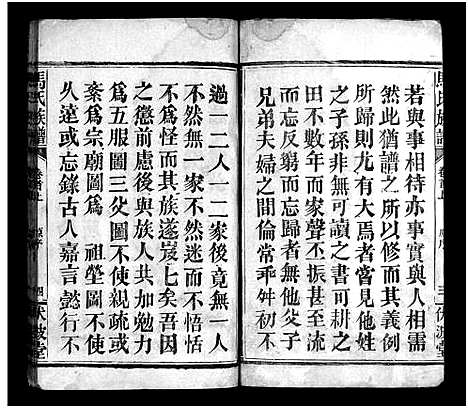 馬氏族譜
若與事相待亦事實與人相需
然此猶譜之所以修而其義例
所歸則尤有大焉者嘗見他姓
之子孫非無可讀之書可耕之
田數年而家聲丕振甚至流
而忘反剽而忘懷骨肉之親
兄弟夫婦之間倫常乖舛初不
三 伏波堂
馬氏族譜
過一二人一二家後竟無一人
不然無一家不然迷而不悟恬
不為怪而其族遂岌岌七矣吾因
之懲前慮後與族人共加勉力
為五服圖三父圖不使親疏或
紊為宗廟圖為 祖塋圖不使
久遠或忘錄古人嘉言懿行不
四 伏波堂